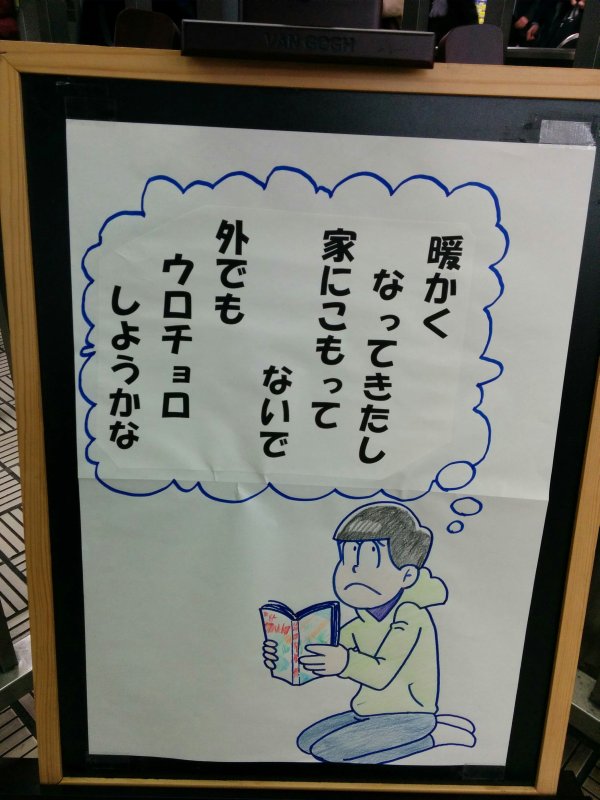 VAN GOGH
暖かく
なってきたし
家にこもって
ないで
外でも
ウロチョロ
しようかな